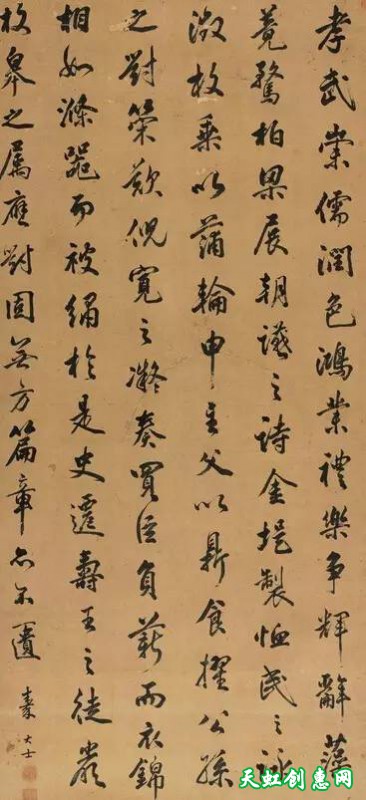 孝武崇儒潤色鴻業禮樂爭輝辭藻
竟騖柏梁展朝讌之詩金堤製恤民之詠
徵枚乘以蒲輪申主父以鼎食擢公孫
之對策歎倪寬之凝奏買臣負薪而衣錦
相如滌器而被繡於是史遷壽王之徒嚴
枚皋之属應對固無方篇章亦不匱
士
天虹创惠网